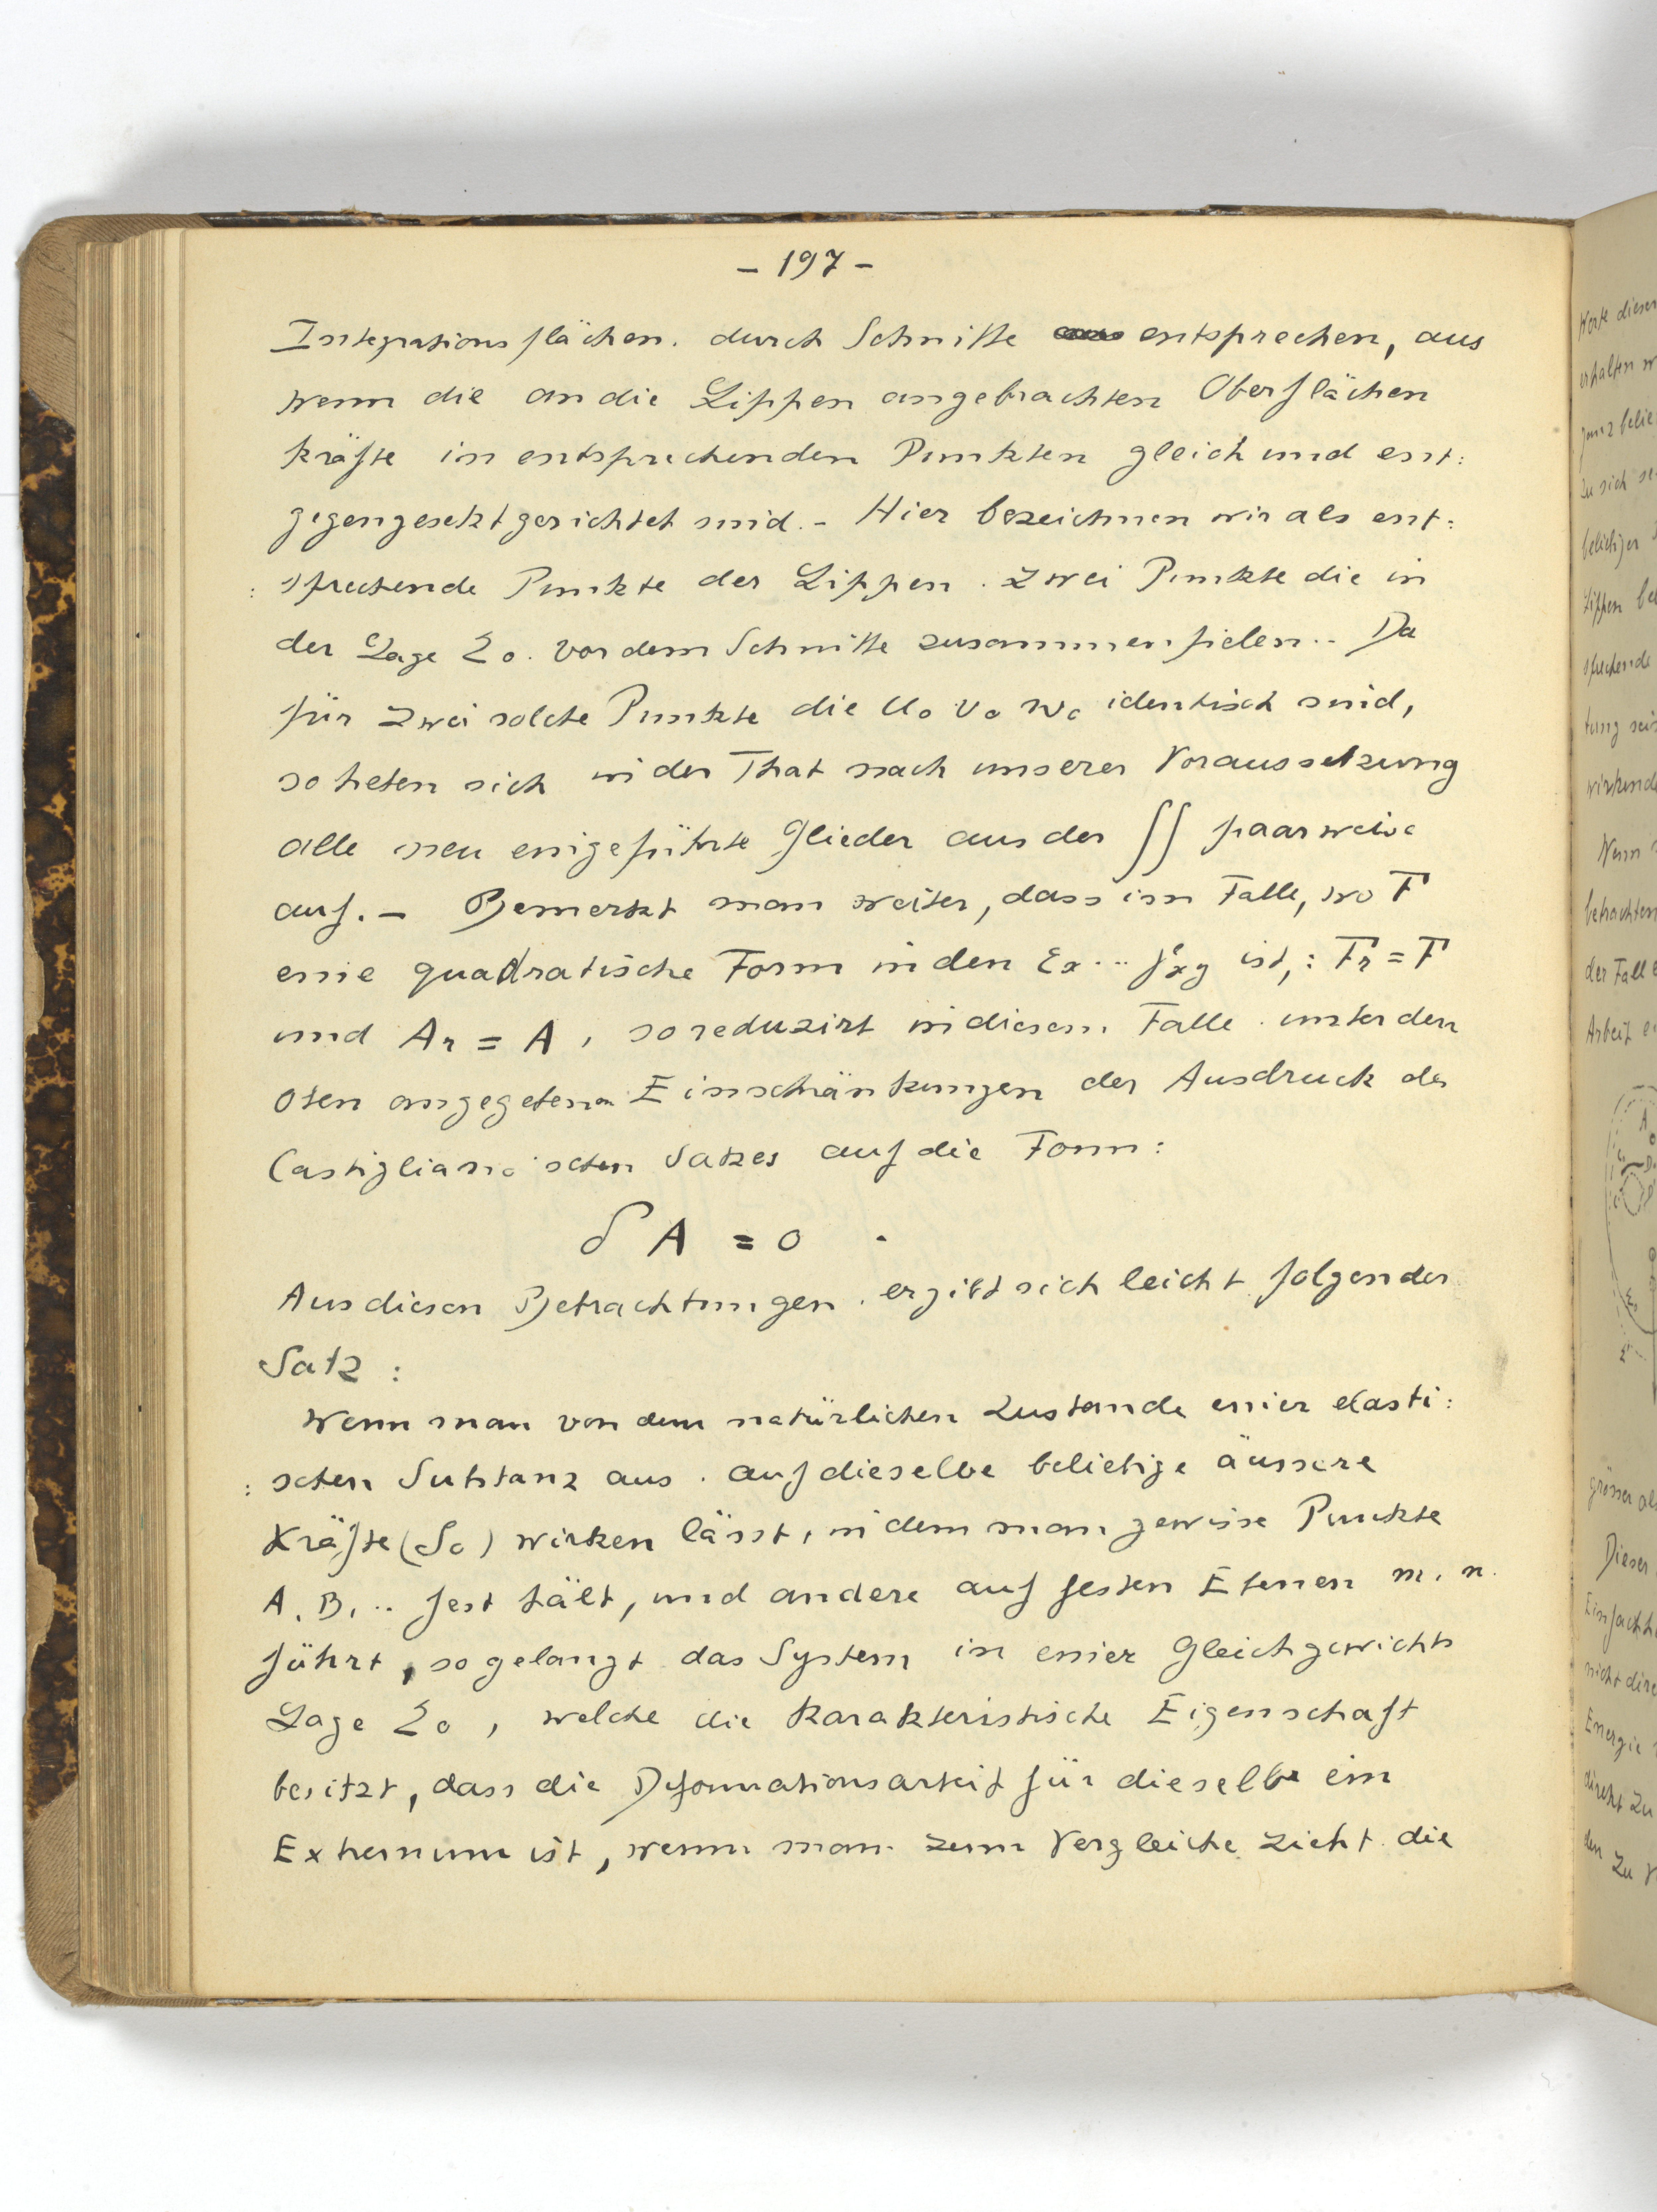 - 197 -
Integrationsflächen. durch Schnitte entsprechen, aus
wenn die an die Lippen angebrachten Oberflächen
kräfte in entsprechenden Punkten gleich und ent:
gegengesetzt gerichtet sind. - Hier bezeichnen wir als ent:
: sprechende Punkte der Lippen. zwei Punkte die in
der Lage Σ₀. vor dem Schnitte zusammenfielen. - Da
für zwei solche Punkte die u₀ v₀ w₀ identisch sind,
so heben sich in der That nach unserer Voraussetzung
alle neu eingeführte Glieder aus der ∫∫ paarweise
auf. - Bemerkt man weiter, dass im Falle, wo F
eine quadratische Form in den εx ... γxy ist,: Fr = F
und Ar = A, so reduzirt in diesem Falle. unter den
oben angegebenen Einschränkungen der Ausdruck des
Castigliano'schen Satzes auf die Form:
δ A = 0 .
Aus diesen Betrachtungen. ergibt sich leicht folgender
Satz :
Wenn man von dem natürlichen Zustande einer elasti:
: schen Substanz aus. auf dieselbe beliebige äussere
Kräfte (S₀) wirken lässt, indem man gewisse Punkte
A, B, .. fest hält, und andere auf festen Ebenen m, n.
führt, so gelangt das System in einer Gleichgewichts
Lage Σ₀, welche die karakteristische Eigenschaft
besitzt, dass die Deformationsarbeit für dieselbe ein
Extremum ist, wenn man zum Vergleiche zieht die
Werte dieser
erhalten
ganz belie
zu sich
beliebiger
Lippen be
sprechende
tung sei
wirkend
Wenn
betrachten
der Falle
Arbeit
grösser al
Dieser
Einfachh
nicht dire
Energie
direkt zu
den zu V